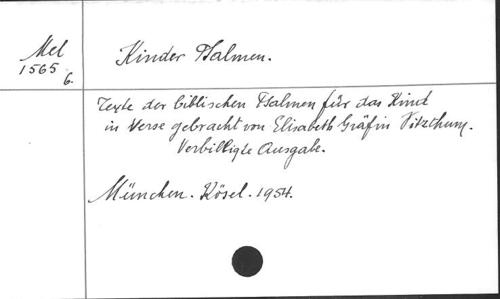 Mel
1565
6.
Kinder Psalmen.
Texte der biblischen Psalmen für das Kind
in Verse gebracht von Elisabeth Gräfin Vitzthum.
Verbilligte Ausgabe.
München. Kösel. 1954.